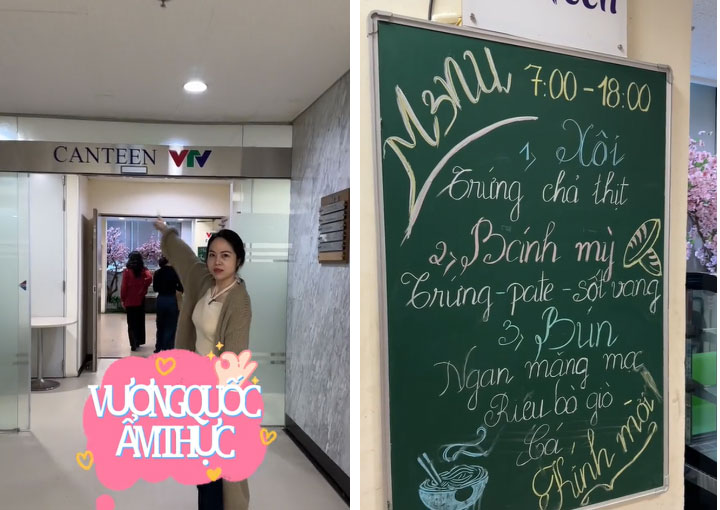 CANTEEN VTV
VƯƠNG QUỐC
ẨM THỰC
Menu 7:00-18:00
1, Xôi
Trứng chả thịt
2, Bánh mỳ
Trứng-pate-sốt vang
3, Bún
Ngan măng mọc
Riêu bò giò
Cá
Kính mời